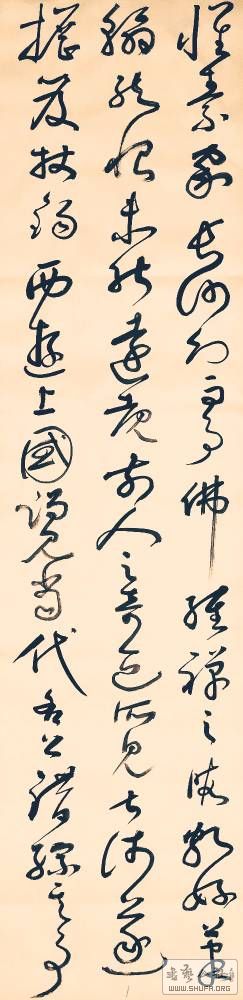 懷素家長沙幼而事佛經禪之暇頗好筆
翰然恨未能遠覩前人之奇迹所見甚淺遂
擔笈杖錫西遊上國謁見當代名公錯綜其事